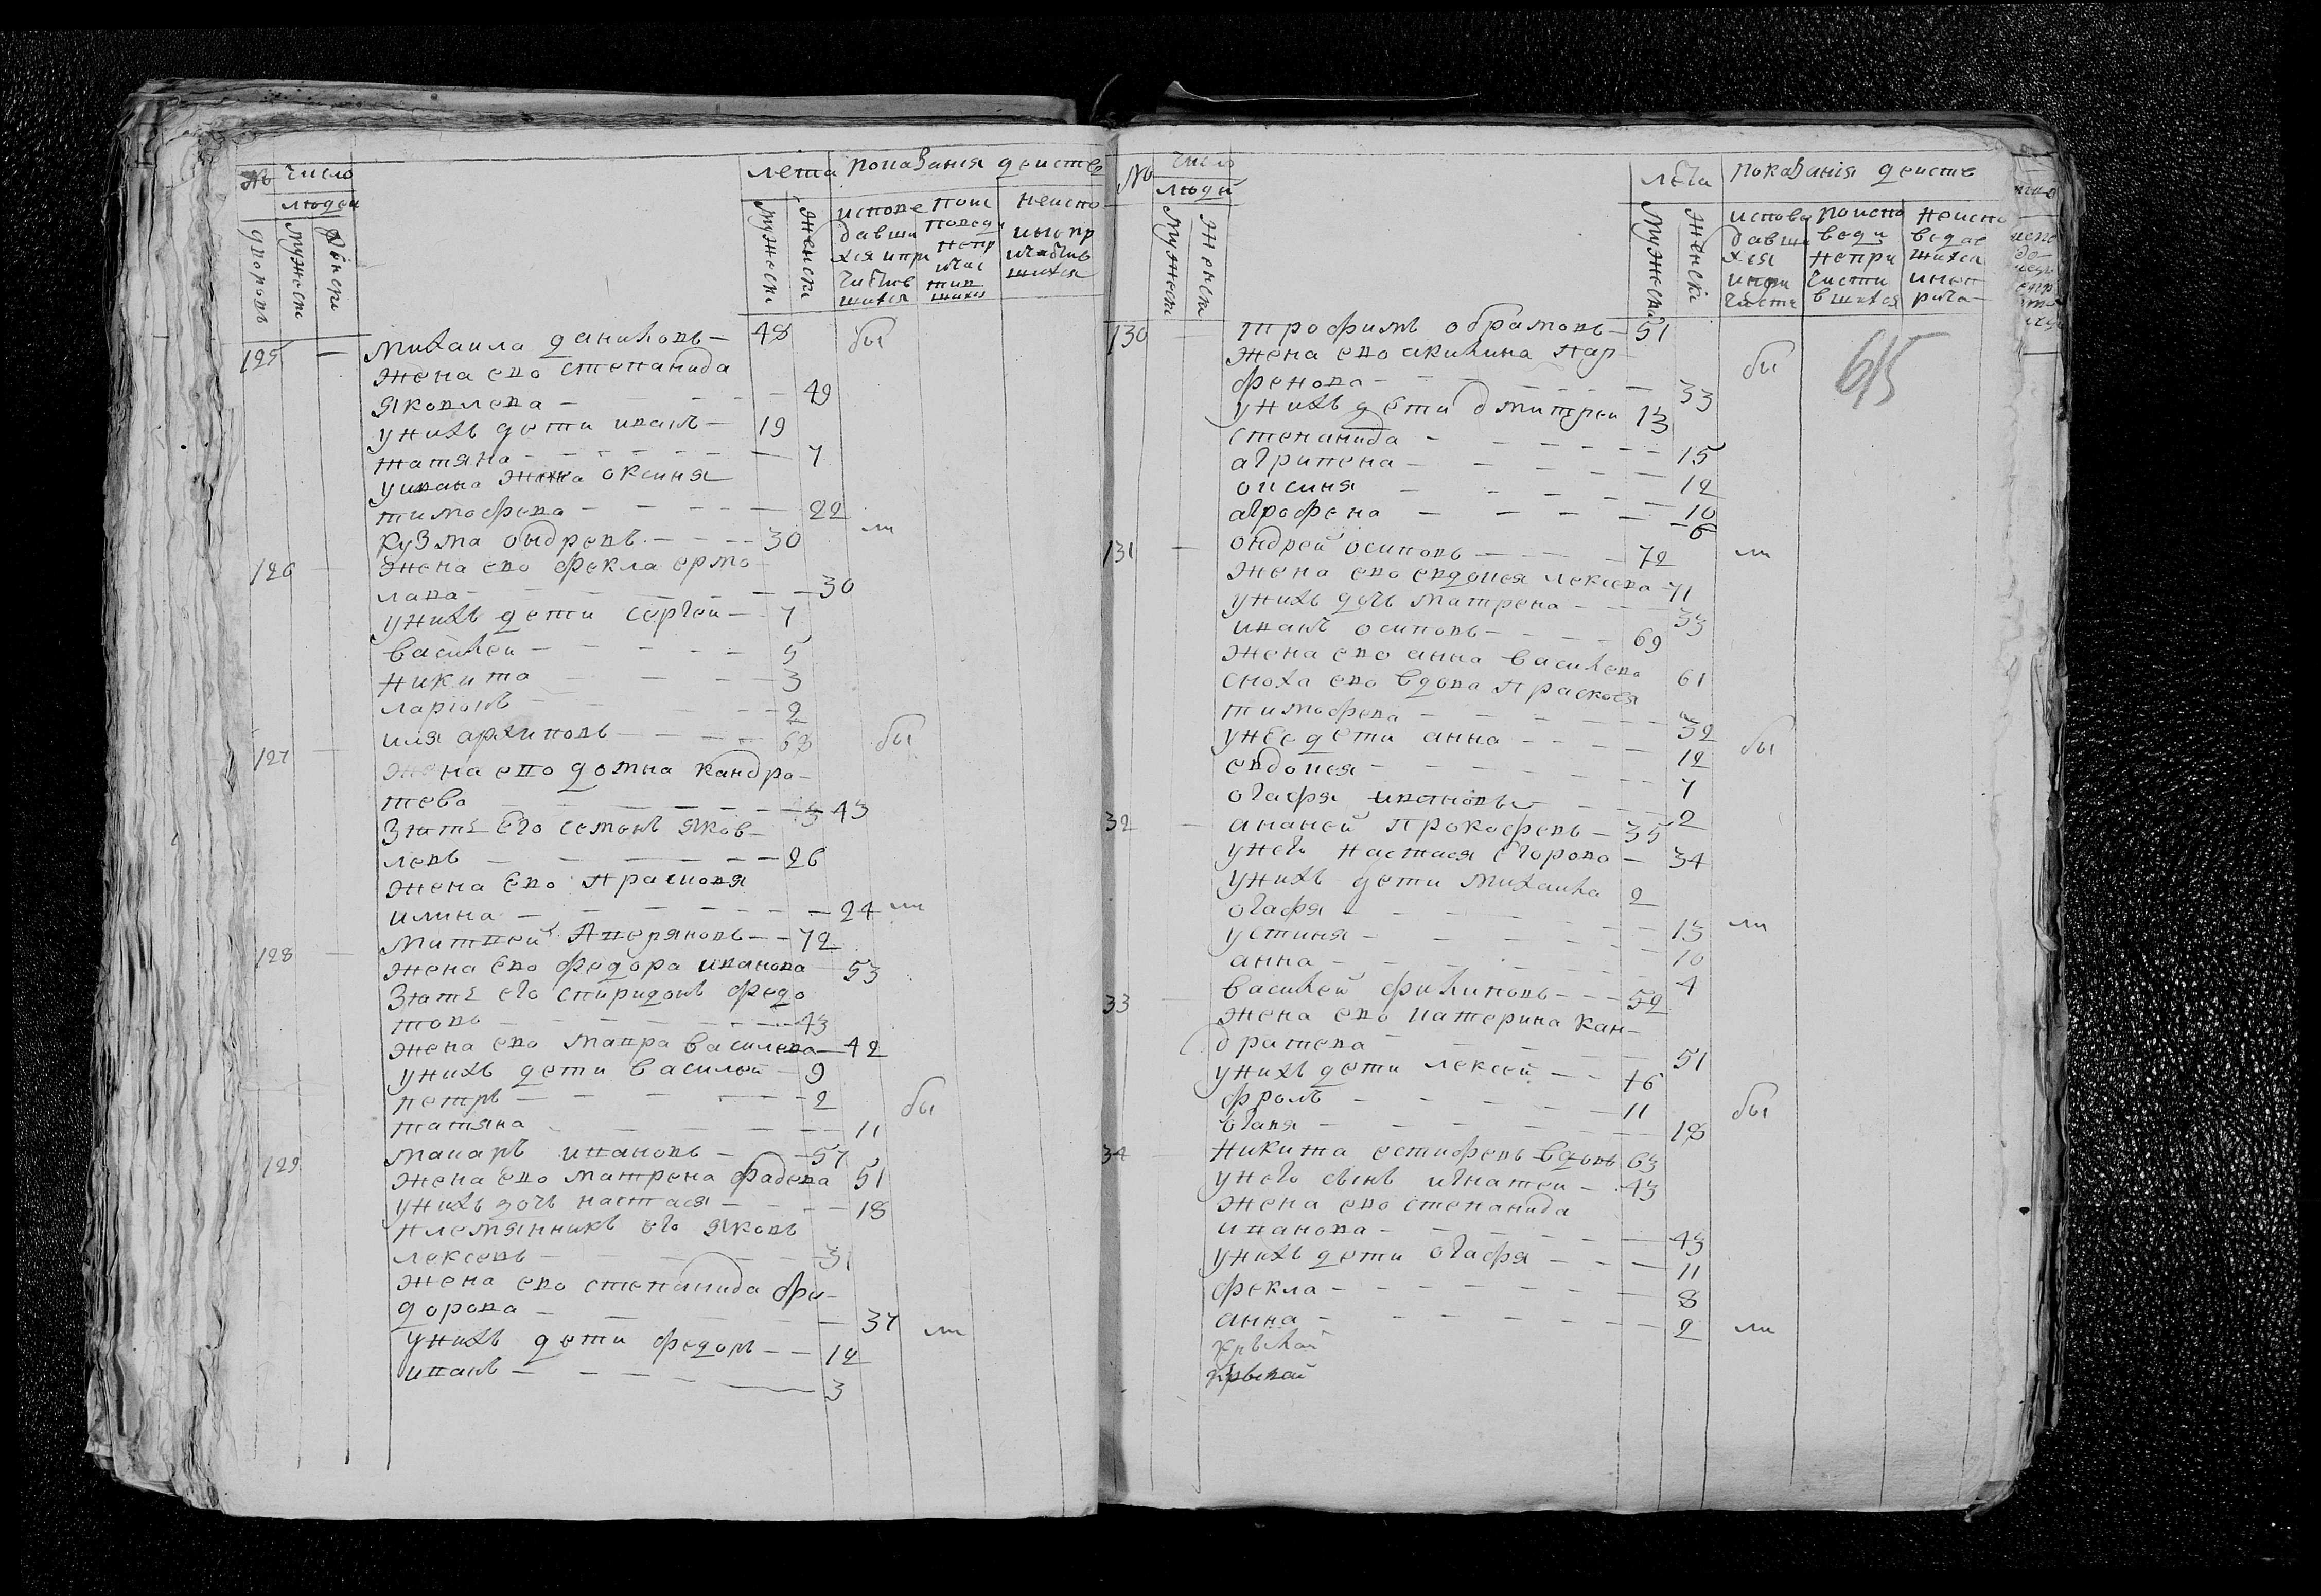 № число лета показания действ
людей
дворовъ мужеска женска мужеска женска
исповедавшихся и причастившихся по исповеди не причастившихся неисповедавшихся
125 михаила данилов 48 бы
жена ево степанида
яковлева 49
у нихъ дети иванъ 19
татяна 7
у ивана жена оксиня
тимофева 22
126 кузма ондревъ 30 ли
жена ево фекла ермо
лава 30
у нихъ дети сергеи 7
василеи 5
никита 3
ларионъ 2
127 иля архиповъ 68 бы
жена ево домна кандра
тева 43
зять его семонъ яков
левъ 26
жена ево прасковя
илина 24 ли
128 матвей аверяновъ 72
жена ево федора иванова 53
зять его спиридонъ федо
товъ 43
жена ево мавра василева 42
у нихъ дети василеи 9
петръ 2 бы
татяна 11
129 макаръ ивановъ 57
жена ево матрена фадева 51
у нихъ дочь настася 18
племянникъ его яковъ
лексевъ 31
жена ево степанида фи
дорова 37
у нихъ дети федоръ 12 ли
иванъ 3
№ число лета показания действ
людей
мужеска женска мужеска женска
615
130 трофимъ обрамовъ 51
жена ево акилина пар бы
фенова 33
у нихъ дети дмитреи 13
степанида 15
агрипена 12
оксиня 10
аграфена 6
131 ондрей осиповъ 72 ли
жена ево евдокея лексева 71
у нихъ дочь матрена 33
иванъ осиповъ 69
жена ево анна василева 61
сноха ево вдова прасковя
тимофева 32
у нее дети анна 12 бы
евдокея 7
огафя 2
32 ананей прокофевъ 35
у него настася егорова 34
у нихъ дети михаила 2
огафя 13 ли
устиня 10
анна 4
33 василей филиповъ 52
жена ево катерина кан
дратева 51
у нихъ дети лексей 16
фролъ 11 бы
18
34 никита естифевъ вдовъ 63
у него сынъ игнатеи 43
жена ево степанида
иванова 43
у нихъ дети огафя 11
фекла 8
анна 2 ли